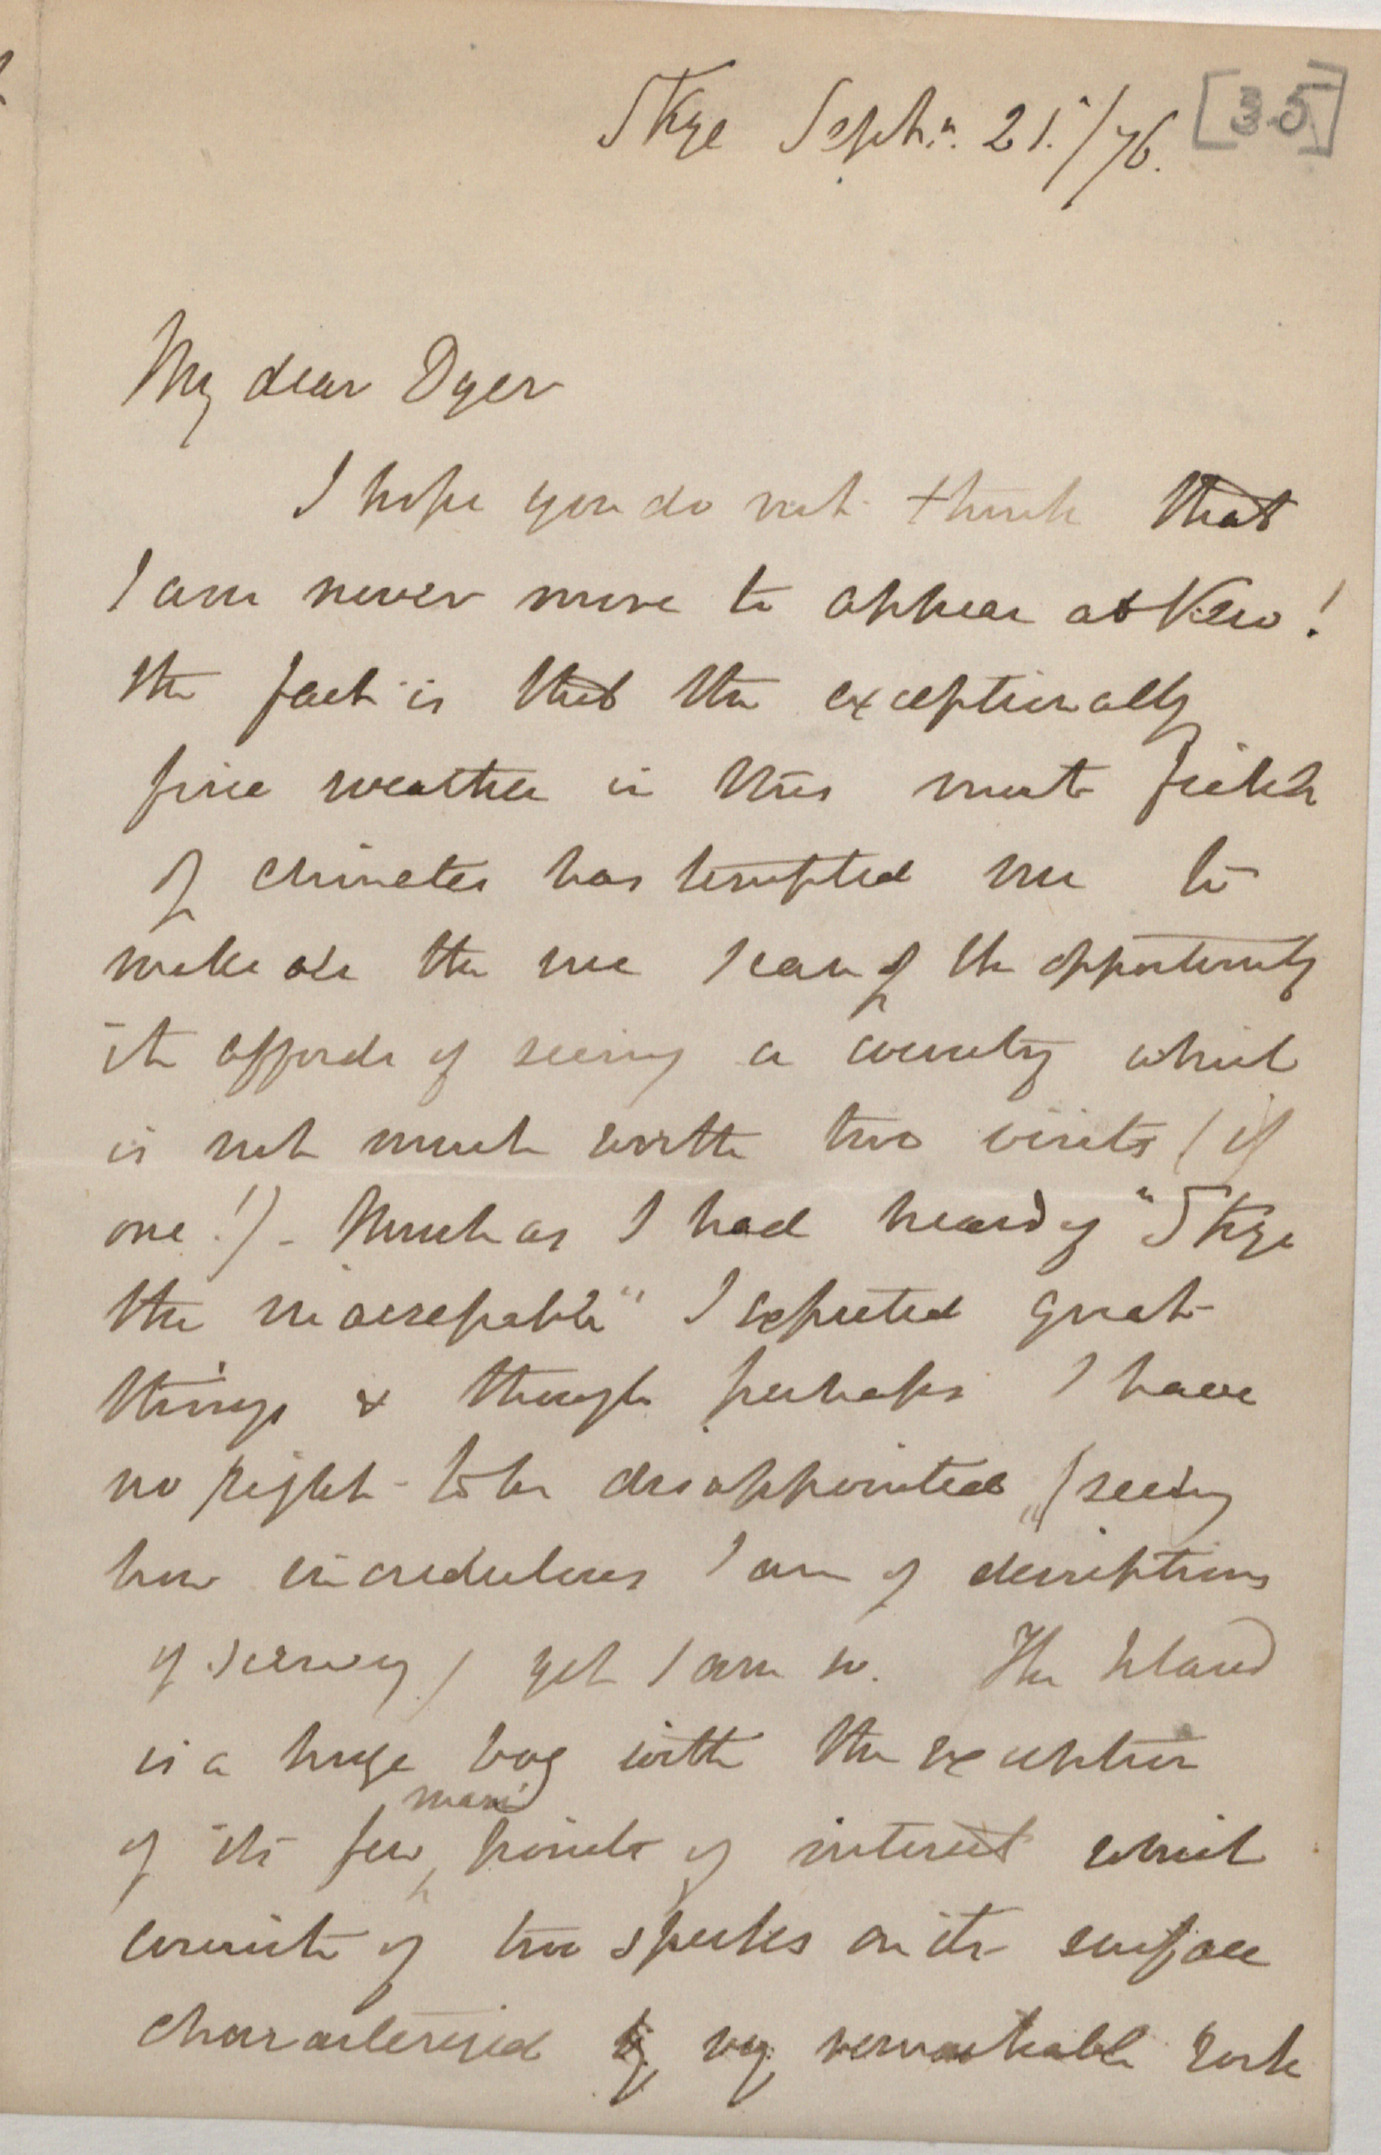 Skye Septr. 21./76. [35]
My dear Dyer
I hope you do not think that
I am never more to appear at Kew!
the fact is that the exceptionally
fine weather in this most fickle
of climates has tempted me to
make all the use I can of the opportunity
it affords of seeing a country which
is not much worth two visits (if
one!) - Much as I had heard of "Skye
the inaccessible" I expected great
things & though perhaps I have
no right to be disappointed, (seeing
how incredulous I am of descriptions
of scenery) yet I am so. The Island
is a huge bog with the exception
of its few main points of interest which
consist of two specks on its surface
characterized by very remarkable rock